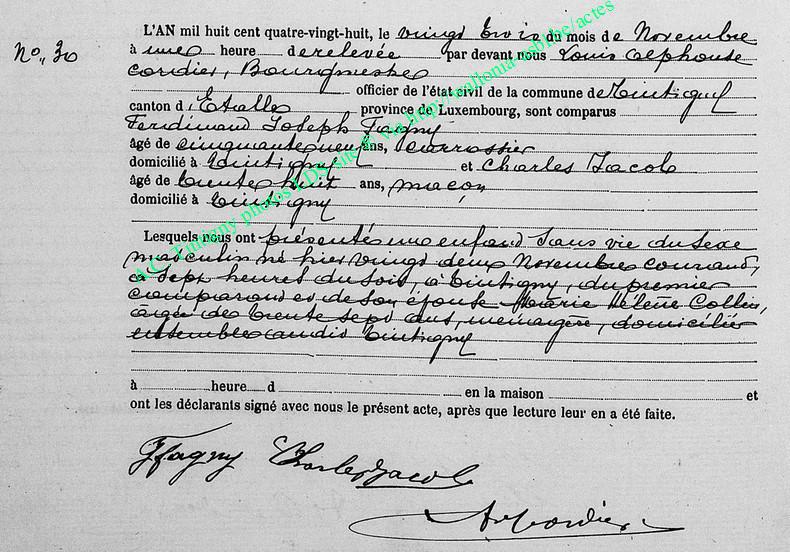 L'AN mil huit cent quatre-vingt-huit, le vingt trois du mois de Novembre
N° 30
à une heure de relevée par devant nous Louis Alphonse
Cordier, Bourgmestre
officier de l'état civil de la commune de Tintigny
canton d'Etalle province de Luxembourg, sont comparus
Ferdinand Joseph Fagny
âgé de cinquante neuf ans, carrossier
domicilié à Tintigny et Charles Jacob
âgé de trente huit ans, maçon
domicilié à Tintigny
Lesquels nous ont présenté un enfant sans vie du sexe
masculin né hier vingt deux Novembre courant,
à sept heures du soir, à Tintigny, du premier
comparant et de son épouse Marie Hélène Collin,
âgée de trente sept ans, ménagère, domiciliés
ensemble audit Tintigny
à heure d en la maison et
ont les déclarants signé avec nous le présent acte, après que lecture leur en a été faite.
Fagny Charles Jacob
Cordier
A.C. Tintigny photos via http://wallonia-asbl.be/actes